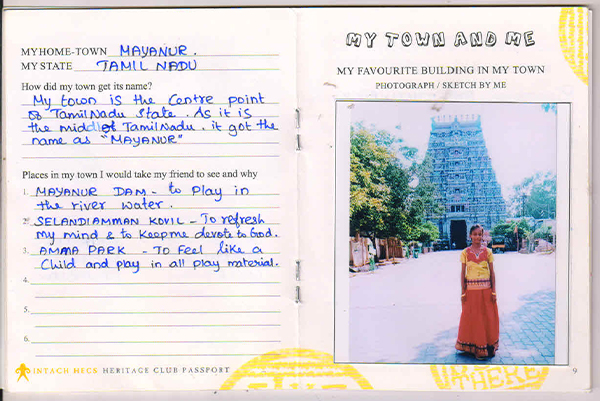 MY HOME-TOWN MAYANUR.
MY STATE TAMIL NADU
How did my town get its name?
My town is the Centre point
of TamilNadu State. As it is
the middle of TamilNadu. it got the
name as "MAYANUR"
Places in my town I would take my friend to see and why
1. MAYANUR DAM - to Play in
the river water.
2. SELANDIAMMAN KOVIL - To refresh
my mind & to keep me devote to God.
3. AMMA PARK - TO Feel like a
Child and play in all play material.
4.
5.
6.
INTACH HECS HERITAGE CLUB PASSPORT
MY TOWN AND ME
MY FAVOURITE BUILDING IN MY TOWN
PHOTOGRAPH / SKETCH BY ME
THERE
9